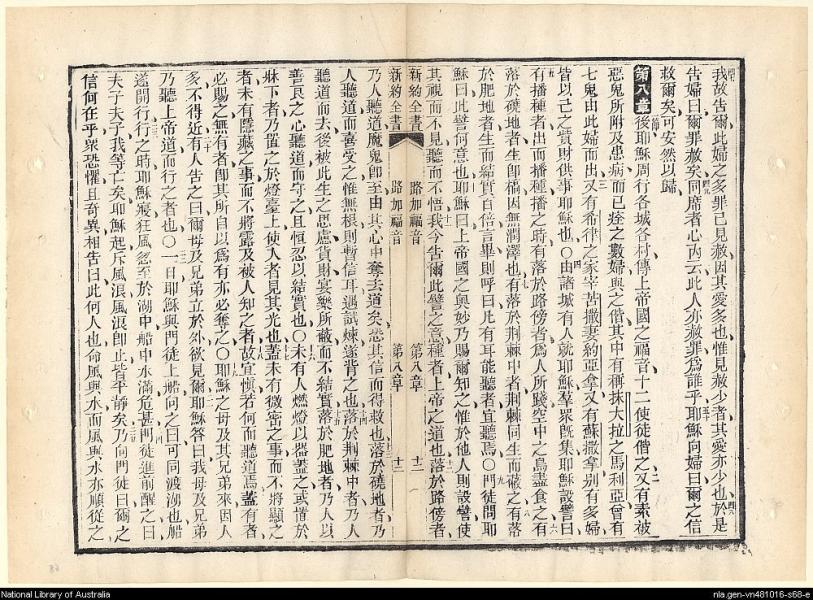 我故告爾此婦之多罪已見赦因其愛多也惟見赦少者其愛亦少也於是
告婦曰爾罪赦矣同席者心內云此人亦赦罪爲誰乎耶穌向婦曰爾之信
救爾矣可安然以歸
第八章 後耶穌周行各城各村傳上帝國之福音十二使徒偕之又有素被
惡鬼所附及患病而已痊之數婦與之偕其中有稱抹大拉之馬利亞曾有
七鬼由此婦而出又有希律之家宰苦撒妻約亞拿又有蘇撒拿別有多婦
皆以己之貲財供事耶穌也〇由諸城有人就耶穌羣衆旣集耶穌設譬曰
有播種者出而播種播之時有落於路傍者爲人所踐空中之鳥盡食之有
落於磽地者生卽槁因無潤澤也有落於荆棘中者荆棘同生而蔽之有落
於肥地者生而結實百倍言畢則呼曰凡有耳能聽者宜聽焉〇門徒問耶
穌曰此譬何意也耶穌曰上帝國之奥妙乃賜爾知之惟於他人則設譬使
其視而不見聽而不悟我今告爾此譬之意種者上帝之道也落於路傍者
新約全書 路加福音 第八章 十二
新約全書 路加福音 第八章 十二
乃人聽道魔鬼卽至由其心中奪去道矣恐其信而得救也落於磽地者乃
人聽道而喜受之惟無根則暫信耳遇試煉遂背之也落於荆棘中者乃人
聽道而去後被此生之思慮貨財宴樂所蔽而不結實落於肥地者乃人以
善良之心聽道而守之且恒忍以結實也〇未有人燃燈以器蓋之或置於
牀下者乃置之於燈臺上使入者見其光也蓋未有微密之事而不將顯之
者未有隱藏之事而不將露及被人知之者故宜愼若何而聽道焉蓋有者
必賜之無有者卽其所自以爲有亦必奪之〇耶穌之母及其兄弟來因人
多不得近有人告之曰爾母及兄弟立於外欲見爾耶穌答曰我母及兄弟
乃聽上帝道而行之者也〇一日耶穌與門徒上船向之曰可同渡湖也船
遂開行行之時耶穌寢狂風忽至於湖中船中水滿危甚門徒進前醒之曰
夫子夫子我等亡矣耶穌起斥風浪風浪卽止皆平靜矣乃向門徒曰爾之
信何在乎衆恐懼且奇異相告曰此何人也命風與水而風與水亦順從之
National Library of Australia
nla.gen-vn481016-s68-e